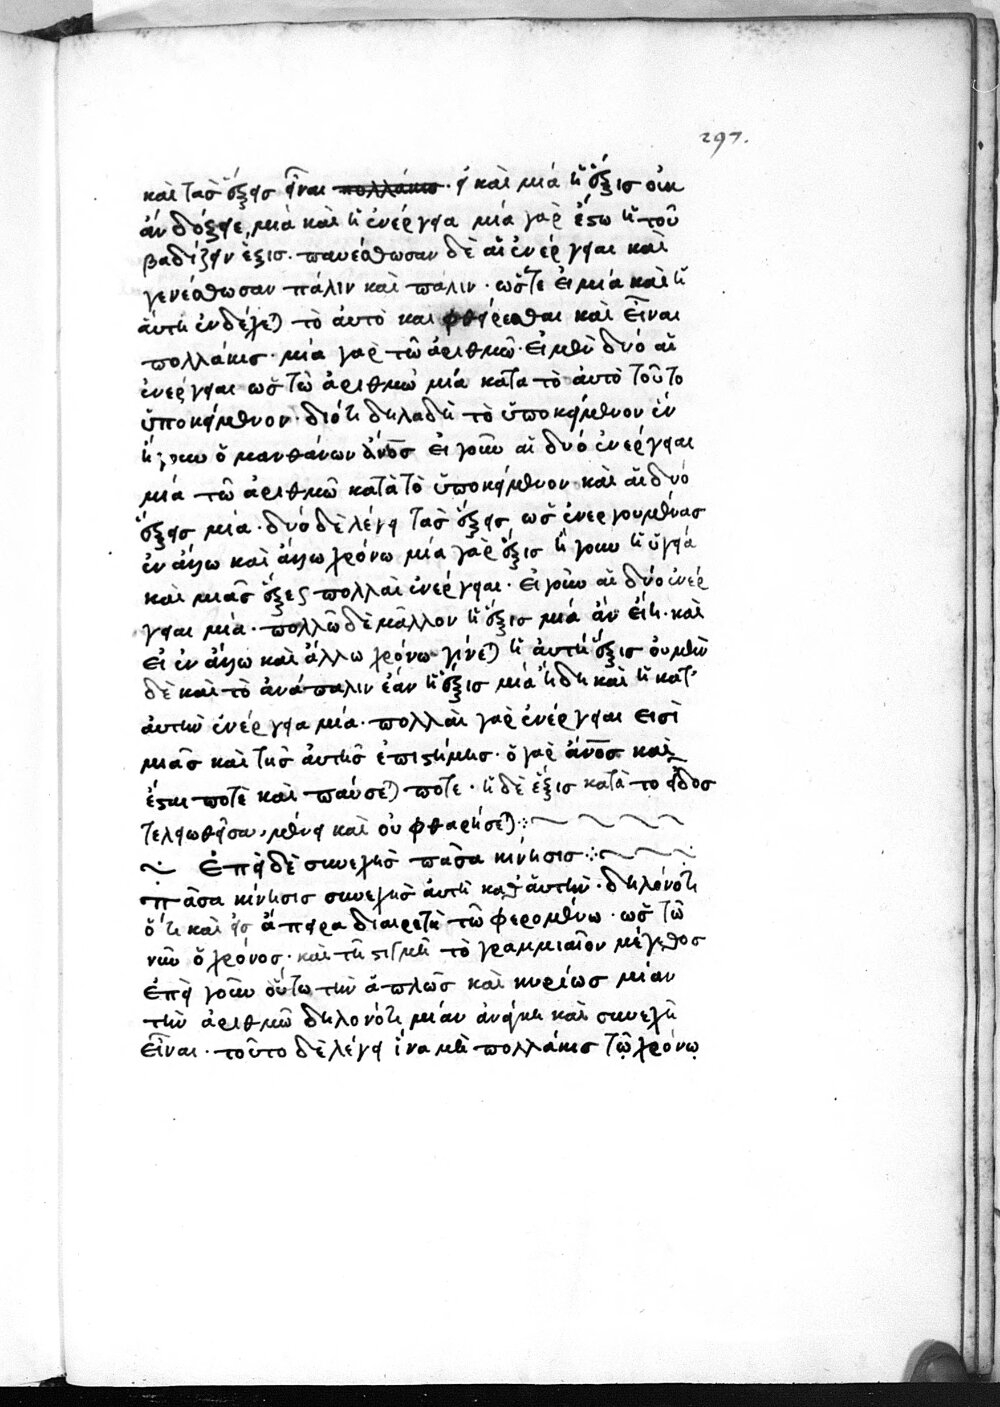 297.
καὶ τὰσ ἕξεισ εἶναι πολλάκισ · εἰ καὶ μιὰ ἡ ἕξισ οὐκ
ἀν δόξειε, μιὰ καὶ ἡ ἐνέργεια μία γὰρ ἔστω ἡ τοῦ
βαδίζειν ἕξισ · παυέσθωσαν δὲ αἱ ἐνέργειαι καὶ
γενέσθωσαν πάλιν καὶ πάλιν · ὥστε εἰ μία καὶ ἡ
ἀυτὴ ἐνδέχεται τὸ ἀυτὸ καὶ φθείρεσθαι καὶ εἶναι
πολλάκισ · μία γὰρ τῶ ἀριθμῶ · εἰ μὲν δύο αἱ
ἐνέργειαι ὡσ τῶ ἀριθμῶ μία κατα τὸ ἀυτὸ τοῦτο
ὑποκείμενον · διότι δηλαδὴ τὸ ὑποκείμενον ἐν
ὁ μανθάνων ἀνοσ εἰ γοῦν αἱ δυό ἐνέργειαι
μία τῶ ἀριθμῶ κατὰ τὸ ὑποκείμενον καὶ αἱ δυό
ἕξεισ μία · δυό δὲ λέγει τὰσ ἕξεισ, ὡσ ἐνεργουμένασ
ἐν ἄλλω καὶ ἄλλω χρόνω μία γὰρ ἕξισ ἡ γοῦν ἡ ὑγεία
καὶ μιᾶσ ἕξεσ πολλαὶ ἐνέργειαι · εἰ γοῦν αἱ δύο ἐνέρ
γειαι μία · πολλῶ δὲ μᾶλλον ἡ ἕξισ μιὰ ἀν εἴη · καὶ
εἰ ἐν ἄλλω καὶ ἄλλω χρόνω γίνεται ἡ ἀυτὴ ἕξισ οὐ μὲν
δὲ καὶ τὸ ἀνάπαλιν ἐάν ἡ ἕξισ μιὰ ἤδη καὶ ἡ κατ'
ἀυτὴν ἐνέργεια μία · πολλαὶ γὰρ ἐνέργειαι εἰσὶ
μιᾶσ καὶ τῆσ ἀυτῆσ ἐπιστήμησ · ὁ γὰρ ἀνοσ καὶ
ἔσται ποτὲ καὶ παύσεται ποτε · ἡ δὲ ἕξισ κατὰ το εἶδοσ
τελειωθεῖσα, μένει καὶ οὐ φθαρήσεται
Ἐπεὶ δὲ συνεχὴσ πᾶσα κίνησισ
πᾶσα κίνησισ συνεχὴσ ἀυτὴ καθ' ἀυτὴν · δηλονότι
ὅτι καὶ εἰσ ἄπειρα διαιρετὴ τῶ φερομένω · ὡσ τῶ
νῦν ὁ χρόνοσ · καὶ τῆ στιγμῆ τὸ γραμμιαῖον μέγεθοσ
Ἐπεὶ γοῦν οὕτω τὴν ἁπλῶσ καὶ κυρίωσ μίαν
τὴν ἀριθμῶ δηλονότι μίαν ἀνάγκη καὶ συνεχῆ
εἶναι · τοῦτο δὲ λέγει ἵνα μὴ πολλάκισ τῷ χρόνῳ